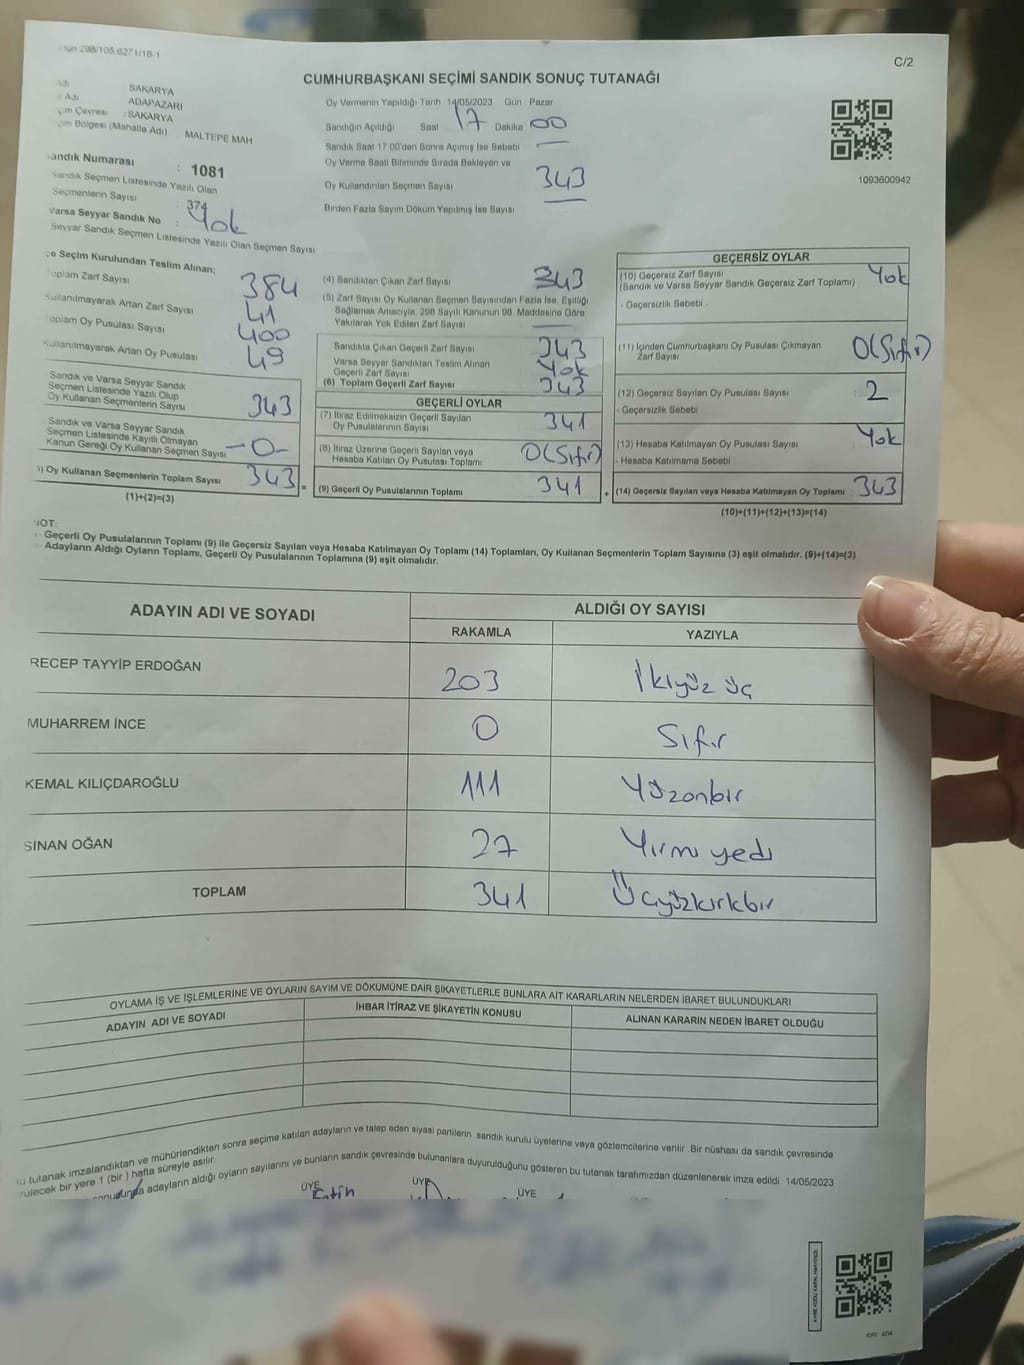 298/105.6271/18-1
C/2
CUMHURBAŞKANI SEÇİMİ SANDIK SONUÇ TUTANAĞI
SAKARYA
Adı ADAPAZARI
Çevresi : SAKARYA
Bölgesi (Mahalla Adı) : MALTEPE MAH
Sandık Numarası : 1081
Sandık Seçmen Listesinde Yazılı Olan
Seçmenlerin Sayısı : 374
Varsa Seyyar Sandık No : Yok
Seyyar Sandık Seçmen Listesinde Yazılı Olan Seçmen Sayısı
Oy Vermenin Yapıldığı Tarih 14/05/2023 Gün : Pazar
Sandığın Açıldığı Saat 17 Dakika 00
Sandık Saat 17.00'den Sonra Açımış İse Sebebi : —
Oy Verme Saati Bitiminde Sırada Bekleyen ve
Oy Kullandırılan Seçmen Sayısı 343
Birden Fazla Sayım Döküm Yapılmış İse Sayısı —
1093600942
İlçe Seçim Kurulundan Teslim Alınan;
Toplam Zarf Sayısı 384
Kullanılmayarak Artan Zarf Sayısı 41
Toplam Oy Pusulası Sayısı 400
Kullanılmayarak Artan Oy Pusulası 49
Sandık ve Varsa Seyyar Sandık
Seçmen Listesinde Yazılı Olup
Oy Kullanan Seçmenlerin Sayısı 343
Sandık ve Varsa Seyyar Sandık
Seçmen Listesinde Kayıtlı Olmayan
Kanun Gereği Oy Kullanan Seçmen Sayısı -0-
) Oy Kullanan Seçmenlerin Toplam Sayısı 343 =
(1)+(2)=(3)
(4) Sandıktan Çıkan Zarf Sayısı 343
(5) Zarf Sayısı Oy Kullanan Seçmen Sayısından Fazla İse, Eşitliği
Sağlamak Amacıyla, 298 Sayılı Kanunun 98. Maddesine Göre
Yakılarak Yok Edilen Zarf Sayısı —
Sandıkta Çıkan Geçerli Zarf Sayısı 343
Varsa Seyyar Sandıktan Teslim Alınan
Geçerli Zarf Sayısı Yok
(6) Toplam Geçerli Zarf Sayısı 343
GEÇERLİ OYLAR
(7) İtiraz Edilmeksizin Geçerli Sayılan
Oy Pusulalarının Sayısı 341
(8) İtiraz Üzerine Geçerli Sayılan veya
Hesaba Katılan Oy Pusulası Toplamı 0(Sıfır)
(9) Geçerli Oy Pusulalarının Toplamı 341 +
GEÇERSİZ OYLAR
(10) Geçersiz Zarf Sayısı
(Sandık ve Varsa Seyyar Sandık Geçersiz Zarf Toplamı) Yok
- Geçersizlik Sebebi -
(11) İçinden Cumhurbaşkanı Oy Pusulası Çıkmayan
Zarf Sayısı 0(Sıfır)
(12) Geçersiz Sayılan Oy Pusulası Sayısı : 2
- Geçersizlik Sebebi
(13) Hesaba Katılmayan Oy Pusulası Sayısı Yok
- Hesaba Katılmama Sebebi
(14) Geçersiz Sayılan veya Hesaba Katılmayan Oy Toplamı : 343
(10)+(11)+(12)+(13)=(14)
NOT:
Geçerli Oy Pusulalarının Toplamı (9) ile Geçersiz Sayılan veya Hesaba Katılmayan Oy Toplamı (14) Toplamları, Oy Kullanan Seçmenlerin Toplam Sayısına (3) eşit olmalıdır. (9)+(14)=(3)
Adayların Aldığı Oyların Toplamı, Geçerli Oy Pusulalarının Toplamına (9) eşit olmalıdır.
ADAYIN ADI VE SOYADI
ALDIĞI OY SAYISI
RAKAMLA YAZIYLA
RECEP TAYYİP ERDOĞAN 203 İkiyüz üç
MUHARREM İNCE 0 Sıfır
KEMAL KILIÇDAROĞLU 111 Yüzonbir
SİNAN OĞAN 27 Yirmi yedi
TOPLAM 341 Üçyüzkırkbir
OYLAMA İŞ VE İŞLEMLERİNE VE OYLARIN SAYIM VE DÖKÜMÜNE DAİR ŞİKAYETLERLE BUNLARA AİT KARARLARIN NELERDEN İBARET BULUNDUKLARI
ADAYIN ADI VE SOYADI İHBAR İTİRAZ VE ŞİKAYETİN KONUSU ALINAN KARARIN NEDEN İBARET OLDUĞU
tutanak imzalandıktan ve mühürlendikten sonra seçime katılan adayların ve talep eden siyasi partilerin sandık kurulu üyelerine veya gözlemcilerine verilir. Bir nüshası da sandık çevresinde
bir yere 1 (bir) hafta süreyle asılır.
adayların aldığı oyların sayılarını ve bunların sandık çevresinde bulunanlara duyurulduğunu gösteren bu tutanak tarafımızdan düzenlenerek imza edildi. 14/05/2023
ÜYE ÜYE ÜYE